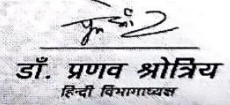 डाँ. प्रणव श्रोत्रिय
हिन्दी विभागाध्यक्ष